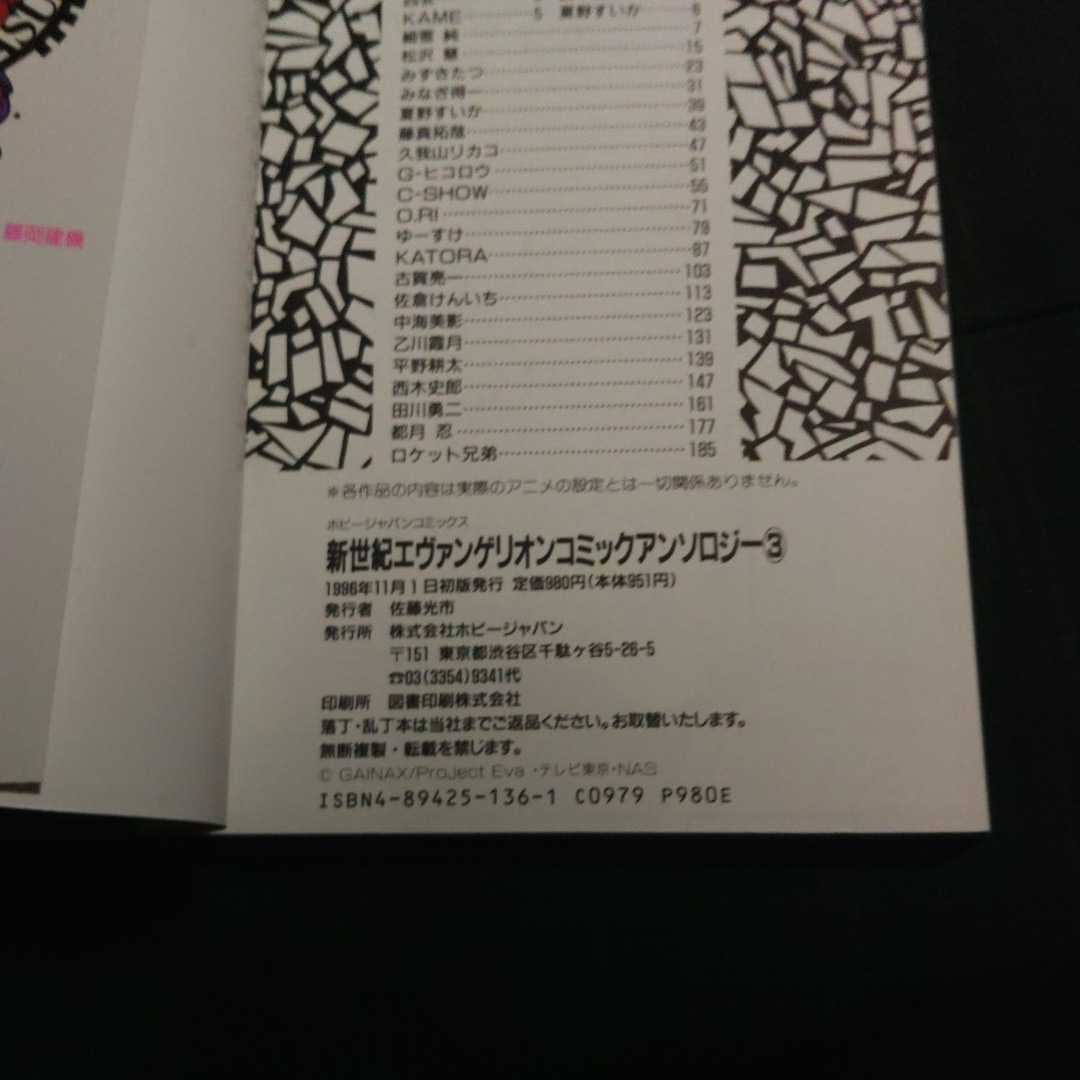 KAME 5 夏野すいか 6
細雪 純 7
松沢 慧 15
みすきたつ 23
みなぎ得一 31
夏野すいか 39
藤真拓哉 43
久我山リカコ 47
G-ヒコロウ 51
C-SHOW 55
O.RI 71
ゆーすけ 79
KATORA 87
古賀亮一 103
佐倉けんいち 113
中海美影 123
乙川霞月 131
平野耕太 139
西木史郎 147
田川勇二 161
都月 忍 177
ロケット兄弟 185
※各作品の内容は実際のアニメの設定とは一切関係ありません。
ホビージャパンコミックス
新世紀エヴァンゲリオンコミックアンソロジー③
1996年11月1日初版発行 定価980円(本体951円)
発行者 佐藤光市
発行所 株式会社ホビージャパン
〒151 東京都渋谷区千駄ヶ谷5-26-5
☎03(3354)9341代
印刷所 図書印刷株式会社
落丁・乱丁本は当社までご返品ください。お取替いたします。
無断複製・転載を禁じます。
© GAINAX/Project Eva・テレビ東京・NAS
ISBN4-89425-136-1 C0979 P980E
藤岡建機